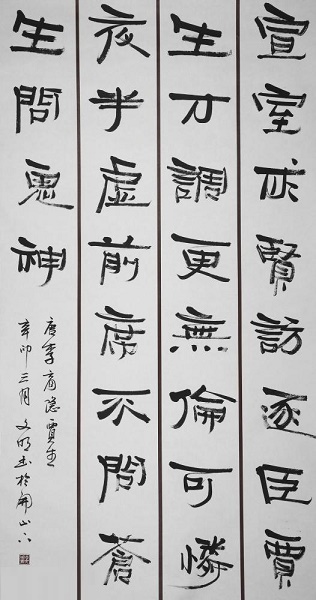 宣室求賢訪逐臣賈
生才調更無倫可憐
夜半虛前席不問蒼
生問鬼神
唐李商隐賈生
辛卯三月文明书於山下